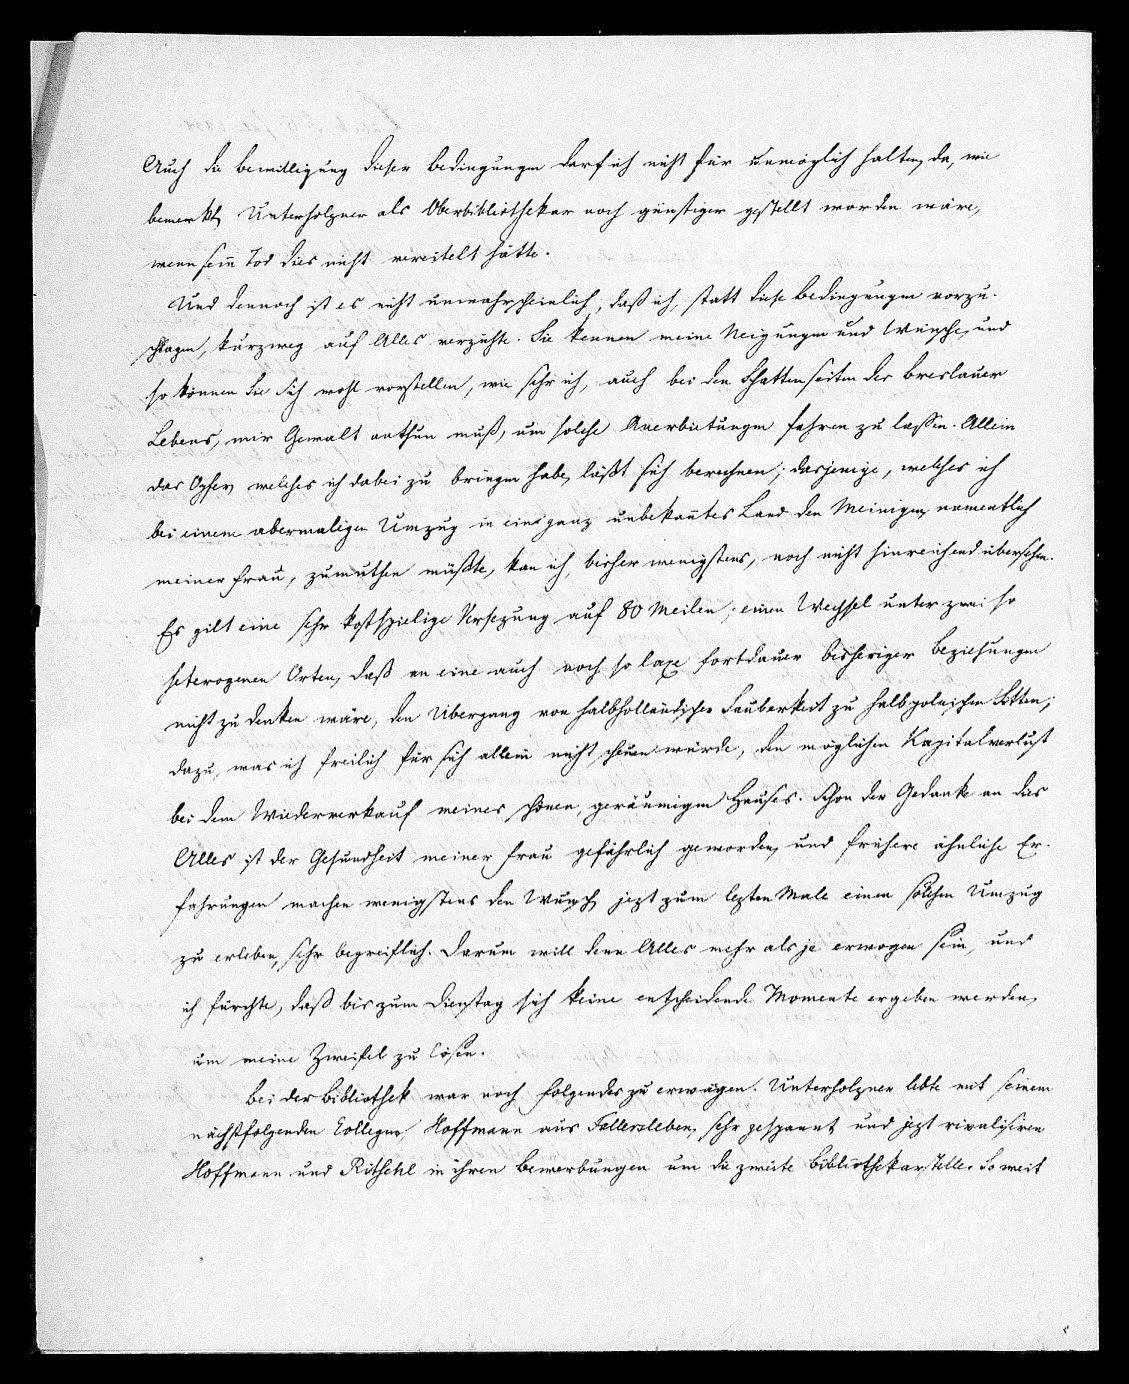 Auch die Bewilligung dieser Bedingungen darf ich nicht für unmöglich halten, da, wie
bemerkt, Unterholzner als Oberbibliothekar noch günstiger gestellt worden wäre,
wenn sein Tod dies nicht vereitelt hätte.
Und dennoch ist es nicht unwahrscheinlich, daß ich, statt diese Bedingungen vorzu-
schlagen, kurzweg auf Alles verzichte. Sie kennen meine Neigungen und Wünsche, und
so können Sie sich wohl vorstellen, wie sehr ich, auch bei den Schattenseiten des Breslauer
Lebens, mir Gewalt anthun muß, um solche Anerbietungen fahren zu lassen. Allein
das Opfer, welches ich dabei zu bringen habe, läßt sich berechnen; dasjenige, welches ich
bei einem abermaligen Umzug in ein ganz unbekanntes Land den Meinigen, namentlich
meiner Frau, zumuthen müßte, kan ich, bisher wenigstens, noch nicht hinreichend übersehen.
Es gilt eine sehr kostspielige Versezung auf 80 Meilen; einen Wechsel unter zwei so
heterogenen Orten, daß an eine auch noch so laxe Fortdauer bisheriger Beziehungen
nicht zu denken wäre, den Übergang von halbholländischer Sauberkeit zu halbpolnischen Sitten;
dazu, was ich freilich für sich allein nicht scheuen würde, den möglichen Kapitalverlust
bei dem Wiederverkauf meines schönen, geräumigen Hauses. Schon der Gedanke an das
Alles ist der Gesundheit meiner Frau gefährlich geworden, und frühere ähnliche Er-
fahrungen machen wenigstens den Wunsch, jezt zum lezten Male einen solchen Umzug
zu erleben, sehr begreiflich. Darum will denn Alles mehr als je erwogen sein, und
ich fürchte, daß bis zum Dienstag sich keine entscheidende Momente ergeben werden,
um meine Zweifel zu lösen.
Bei der Bibliothek war noch folgendes zu erwägen. Unterholzner lebte mit seinem
nächstfolgenden Collegen, Hoffmann aus Fallersleben, sehr gespannt, und jezt rivalisiren
Hoffmann und Ritschl in ihren Bewerbungen um die zweite Bibliothekarstelle. So weit